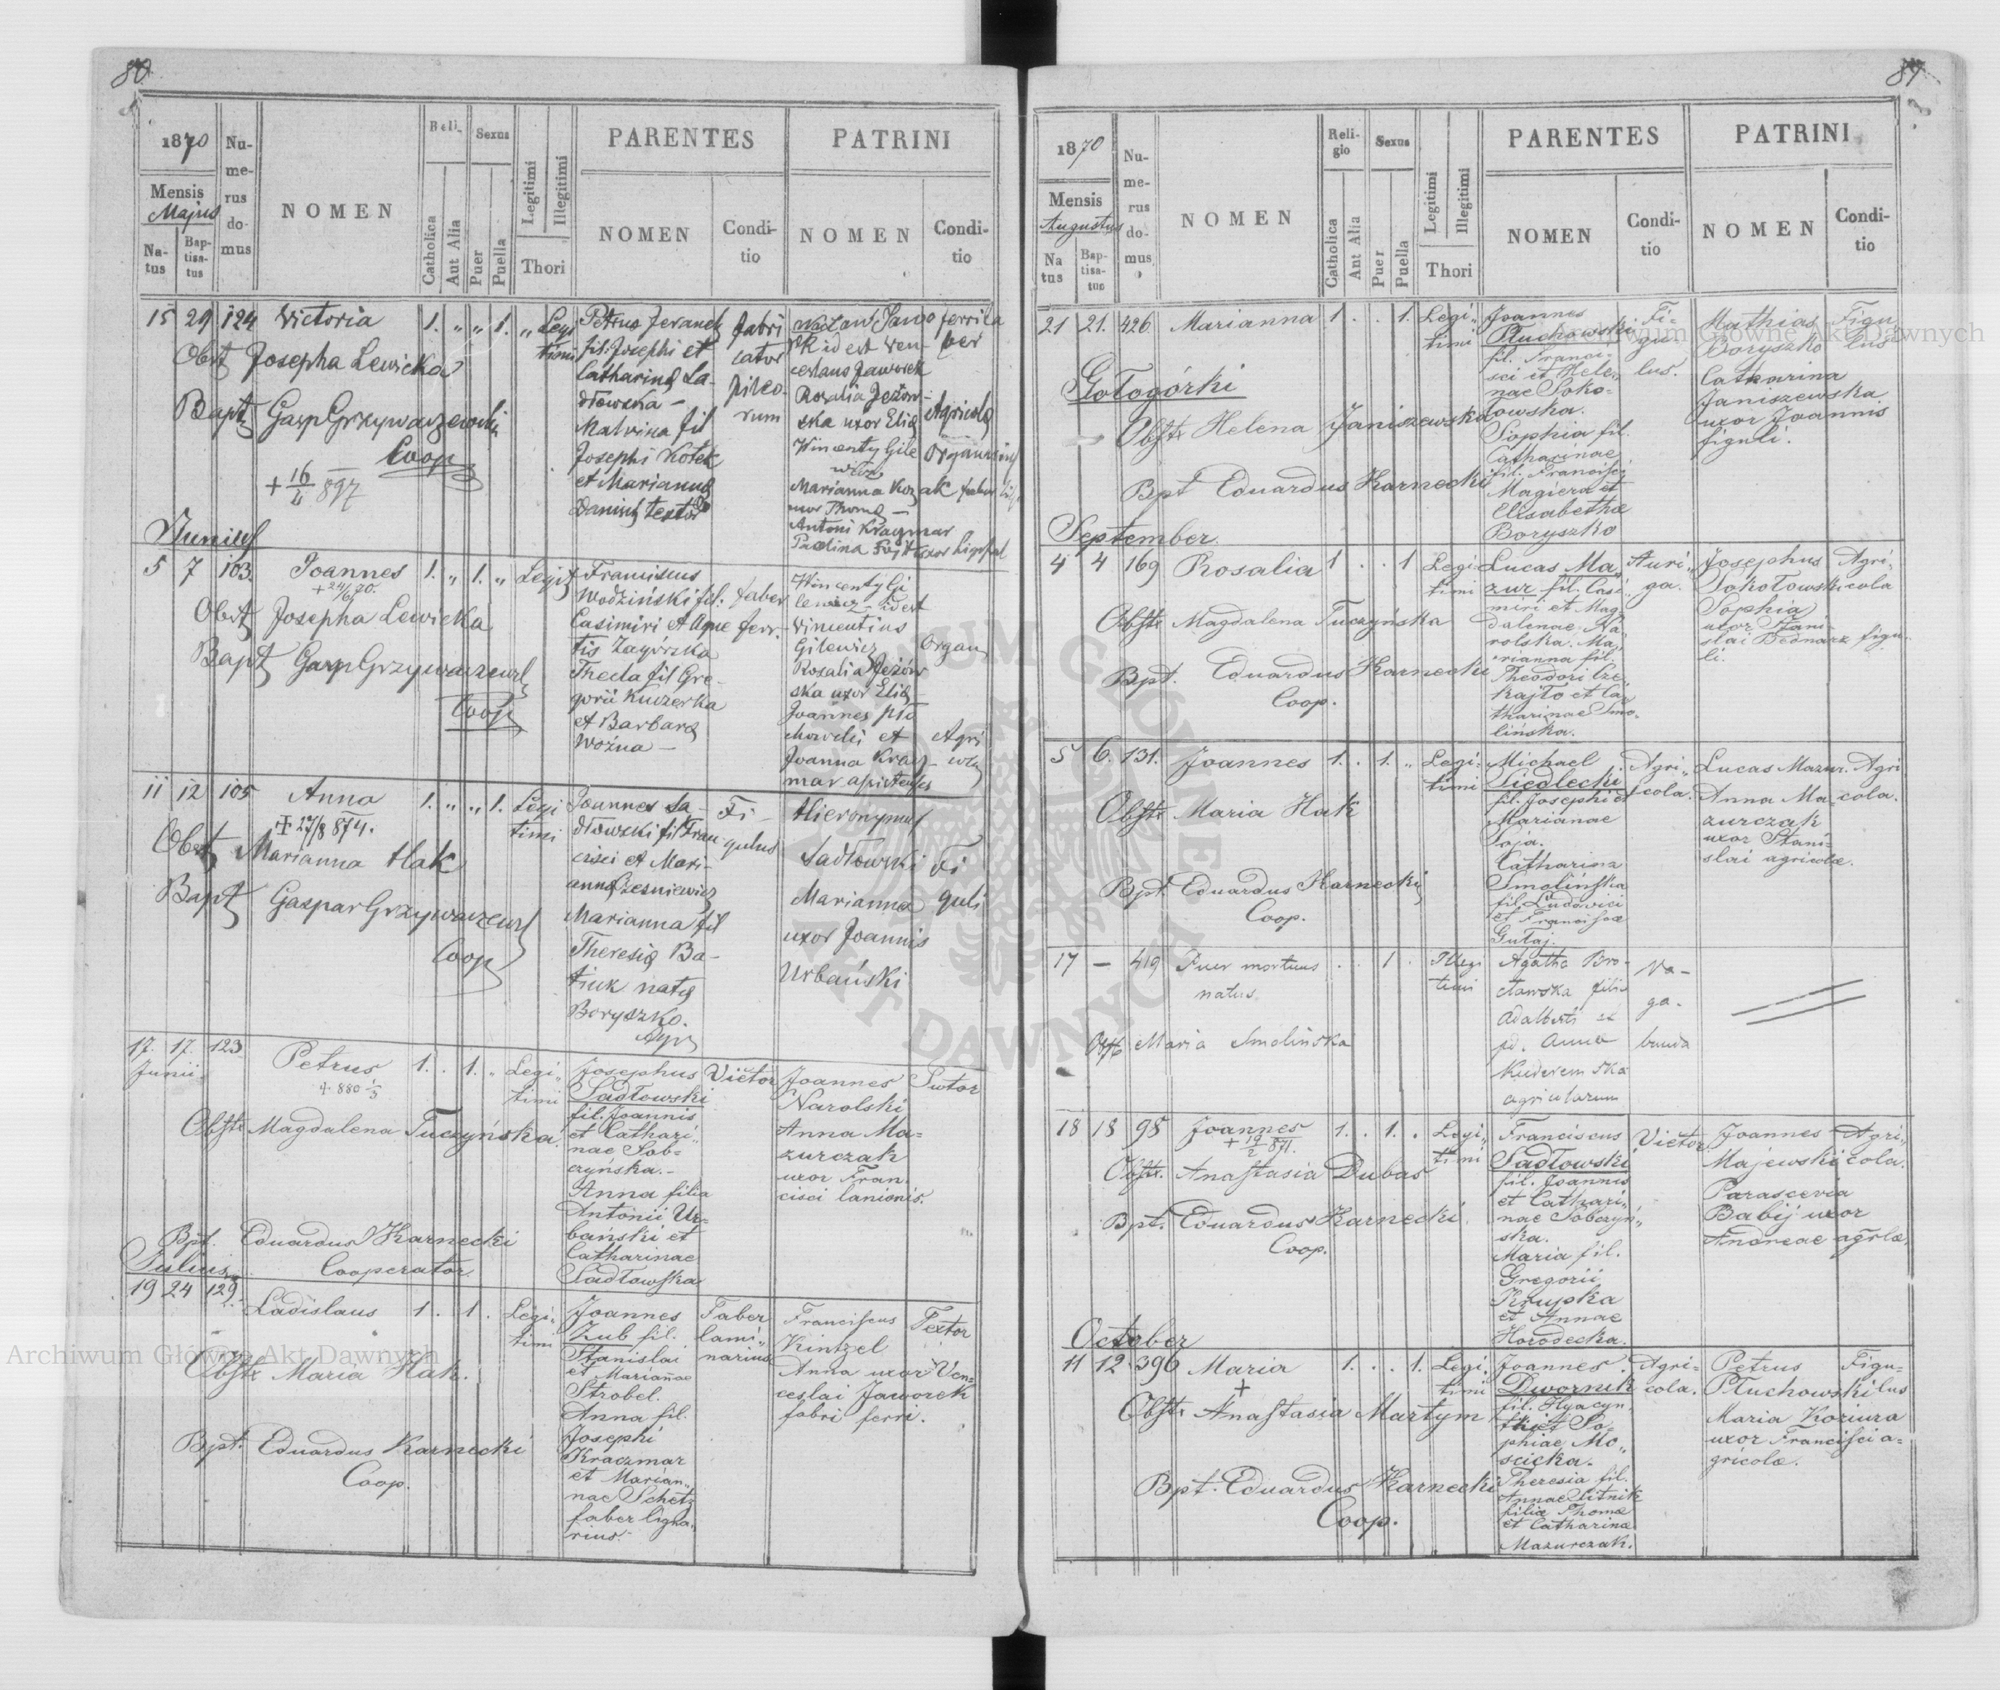 80.
1870
Mensis
Majus
Na-
tus
Bap-
tisa-
tus
Nu-
me-
rus
do-
mus
NOMEN
Reli-
Catholica
Aut Alia
Sexus
Puer
Puella
Legitimi
Illegitimi
Thori
PARENTES
NOMEN
Condi-
tio
PATRINI
NOMEN
Condi-
tio
15 29 124 Victoria 1. " " 1. " Legi
timi
Obst Josepha Lewicka
Bapt Gasp Grzywaczewski
Coop
+ 16/4 897
Petrus Jeranek
fil. Josephi et
Catharina La-
dłowska –
Malvina fil
Josephi Kotek
et Marianna
Danisz textor
fabri
cator
pileo-
rum
Wacław Jawo
rk id est Ven-
ceslaus Jaworek
Rosalia Jeżow-
ska uxor Elia
Wincenty Gile
wicz
Marianna Kozak
uxor Thoma –
Antoni Kraymar
Paulina
ferri fa
ber
Agricola
Organi
Junius
5 7 103. Joannes 1. " 1. " Legit
+ 24/ 70.
Obst Josepha Lewicka
Bapt Gasp Grzywaczewsk
Coop
Franciscus
Wodziński fil.
Casimiri et Agne
tis Zagórska
Thecla fil Gre-
gorii Kuczerka
et Barbara
Woźna –
faber
ferr.
Wincenty Gi
lewicz – id est
Vincentius
Gilewicz
Rosalia Jeżow
ska uxor Elia
Joannes Pło
chowski et
Joanna Kray-
mar
organ
Agri
11 12 105 Anna 1. " " 1. Legi
timi
+ 27/8 874.
Obst Marianna Hak
Bapt Gaspar Grzywaczewsk
Coop
Joannes Sa-
dłowski fil Fran
cisci et Mari-
anna Cześniewicz
Marianna fil
Theresia Ba-
tiuk nata
Boryszko.
Fi-
gulus
Hieronymus
Sadłowski
Marianna
uxor Joannis
Urbański
Fi
guli
17. 17. 123 Petrus 1. . 1. " Legi
timi
Junii
+ 880 1/3
Obstr Magdalena Tuczyńska.
Bpt. Eduardus Karnecki
Cooperator
Josephus
Sadłowski
fil. Joannis
et Cathari"
nae Sob=
czyńska. –
Anna filia
Antonii Ur=
bański et
Catharinae
Sadłowska
Viëtor
Joannes
Narolski
Anna Ma=
zurczak
uxor Fran
cisci lanionis.
Sutor
Julius
19 24 129. Ladislaus 1. . 1. . Legi-
timi
Obstr Maria Hak.
Bpt. Eduardus Karnecki
Coop.
Joannes
Zub fil.
Stanislai
et Mariannae
Strobel.
Anna fil.
Josephi
Kraczmar
et Marian"
nae Schetz
faber ligna"
rius.
Faber
lami"
narius
Franciscus
Kintzel
Anna uxor Ven=
ceslai Jaworek
fabri ferri.
Textor
87
1870
Mensis
Augustus
Na
tus
Bap-
tisa-
tus
Nu-
me-
rus
do-
mus
NOMEN
Reli-
gio
Catholica
Aut Alia
Sexus
Puer
Puella
Legitimi
Illegitimi
Thori
PARENTES
NOMEN
Condi-
tio
PATRINI
NOMEN
Condi-
tio
21 21. 426 Marianna 1 . . 1. Legi"
timi
Gołogórki
Obstr Helena Janiszewska
Bpt Eduardus Karnecki
Joannes
Płuchowski
fil. Franci-
sci et Hele"
nae Soko=
łowska.
Sophia fil.
Catharinae
fil. Francisci
Magiera et
Elisabetha
Boryszko
Fi-
gu-
lus.
Mathias
Boryszko
Catharina
Janiszewska
uxor Joannis
figuli.
Figu
lus
September
4 4 169 Rosalia 1 . . 1 Legi-
timi
Obstr Magdalena Tuczyńska
Bpt. Eduardus Karnecki
Coop.
Lucas Ma"
zur fil. Casi
miri et Mag=
dalenae Na-
rolska. Ma"
rianna fil.
Theodori Cze"
kajło et Ca"
tharinae Smo-
lińska.
Auri"
ga.
Josephus
Sokołowski
Sophia
uxor Stani-
slai Bednarz figu"
li.
Agri-
cola
5 6. 131. Joannes 1. . 1. " Legi-
timi
Obstr Maria Hak
Bpt. Eduardus Karnecki
Coop.
Michael
Siedlecki
fil. Josephi et
Marianae
Soja.
Catharina
Smolińska
fil. Ludovici
et Franciscae
Gutaj.
Agri"
cola.
Lucas Mazur.
Anna Ma=
zurczak
uxor Stani-
slai agricolae.
Agri
cola.
17 – 419 Puer mortuus . . 1 . Illegi
timi
natus.
Obstr Maria Smolińska
Agatha Bro-
cławska filia
Adalberti et
pd. Anna
Kuderewska
agricolarum
Va-
ga-
bunda
18 18 98 Joannes 1. . 1. . Legi"
timi
+ 19/2 871.
Obstr. Anastasia Dubas
Bpt. Eduardus Karnecki.
Coop.
Franciscus
Sadłowski
fil. Joannis
et Cathari"
nae Sobczyń"
ska.
Maria fil.
Gregorii
Krupka
et Annae
Horodecka.
Viëtor.
Joannes
Majewski
Parascevia
Babij uxor
Andreae agrlae.
Agri"
cola.
October
11 12. 396 Maria 1. . . 1. Legi.
timi
+
Obstr Anastasia Martym
Bpt. Eduardus Karnecki
Coop.
Joannes
Dwornik
fil. Hyacyn"
thi et So"
phiae Mo"
scicka.
Theresia fil.
Annae Litnik
filia Thomae
et Catharinae
Mazurczak.
Agri=
cola.
Petrus
Płuchowski
Maria Koriura
uxor Francisci a=
gricolae.
Figu-
lus
Archiwum Główne Akt Dawnych
Archiwum Główne Akt Dawnych
ARCHIWUM GŁÓWNE AKT DAWNYCH